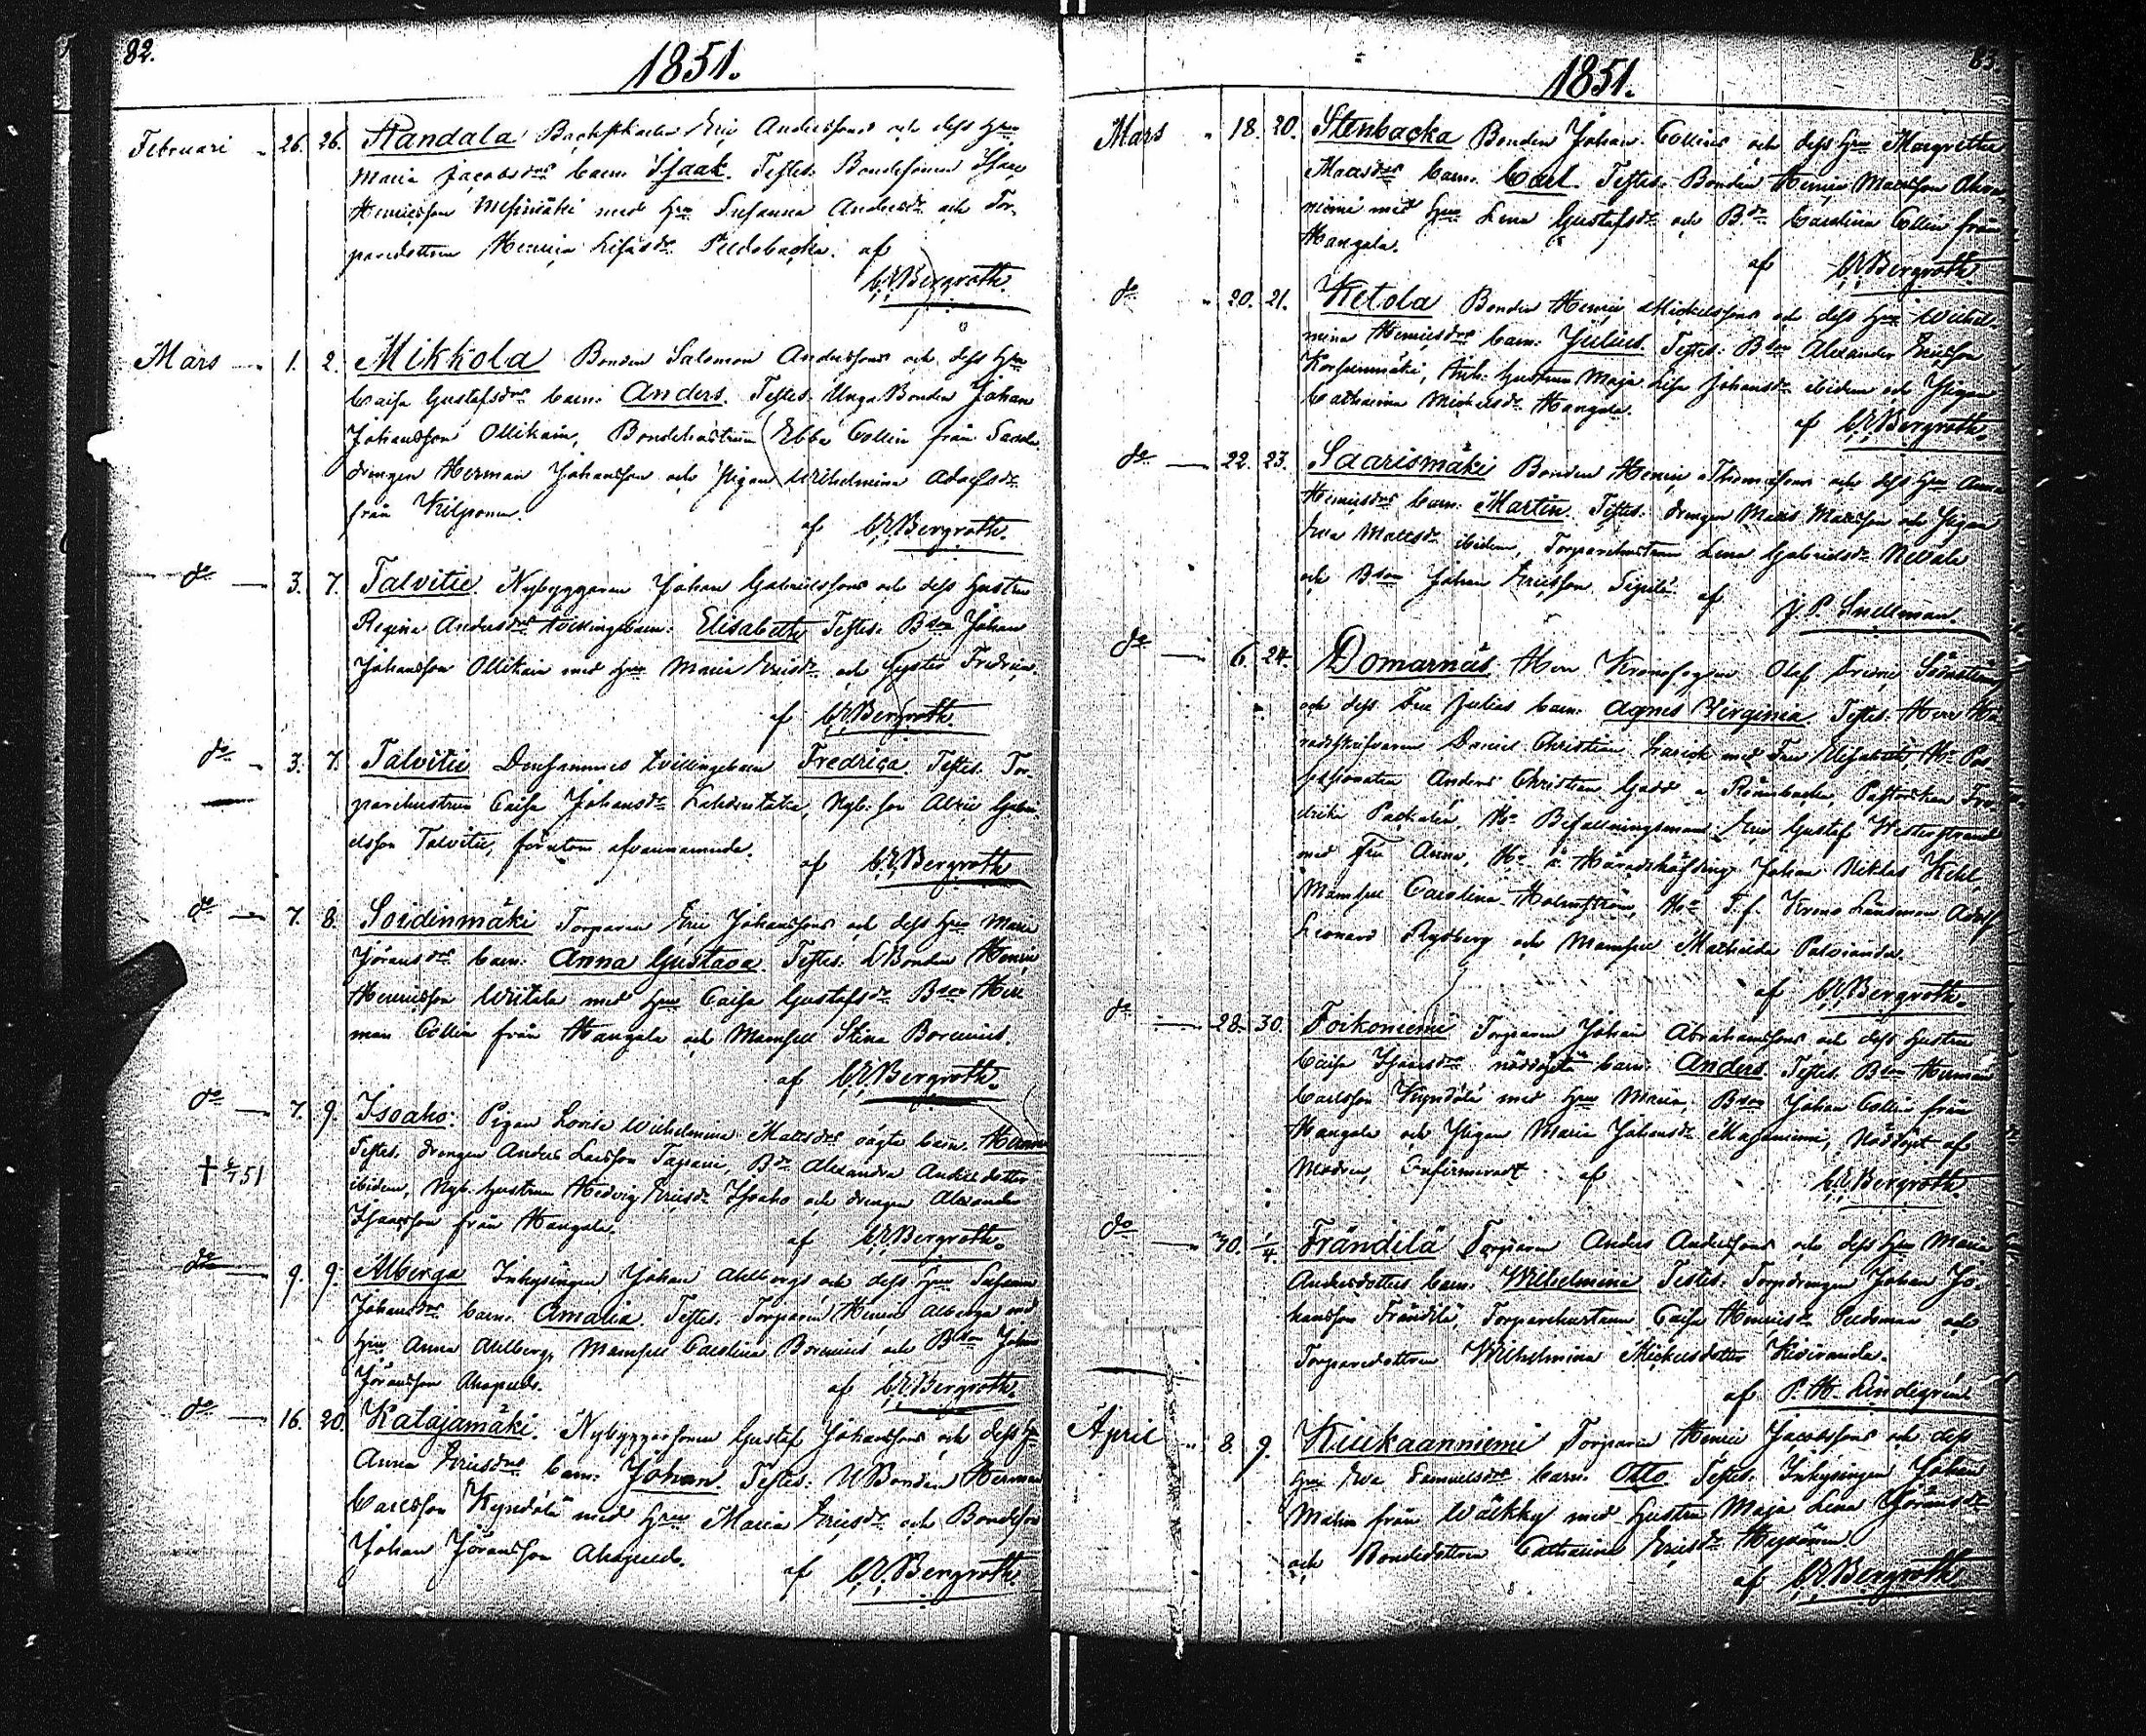 82.
1851.
Februari 26. 26. Randala Backstkarlen Eric Anderssons och dess Hru
Maria Jacobsdrs barn: Isaak. Testes: Bondesonen Isaac
Henricsson med Hru Susanna Andersdr och Tor-
paredottren Lisa
af C.E. Bergroth.
Mars 1. 2. Mikkola Bonden Salomon Anderssons och dess Hru
Caisa Gustafsdrs barn: Anders. Testes: Unga Bonden Johan
Johansson Ollikain, Bondehustrun Ebba Collin från
drengen Herman Johansson och Pigan Wilhelmina Adolfsdr
från Kilponen.
af C.E. Bergroth.
do 3. 7. Talvitie. Nybyggaren Johan Gabrielssons och dess hustru
Regina Andersdrs tvillingebarn: Elisabeth Testes: Bson Johan
Johansson Ollikain med Hru Maria Ericsdr och Syster Fredrica.
af C.E. Bergroth
do 3. 7. Talvitie Densammes tvillingebarn Fredrica. Testes: Tor-
parehustrun Caisa Johansdr Nyb: son Gabri-
elsson Talvitie, förutom ofvannämnde.
af C.E. Bergroth
do 7. 8. Soidinmäki Torparen Eric Johanssons och dess Hru Maria
Jöransdrs barn: Anna Gustava. Testes: Bonden Henric
Henricsson Wiitala med Hru Caisa Gustafsdr Bson Her-
man Collin från Kangala och Mamsell Stina Borenius.
af C.E. Bergroth.
do 7. 9. Isoaho: Pigan Lovisa Wilhelmina Mattsdrs oägta barn: Herman
Testes: drengen Anders Larsson Tapani, Bdr Alexandra Andersdotter
† 51 ibidem, Nyb: hustrun Hedvig Ericsdr Isoaho och drengen Alexander
Isaacsson från Kangala.
af C.E. Bergroth.
do 9. 9. Alberga Inhysingen Johan Ahlbergs och dess Hru Susanna
Johansdrs barn: Amalia. Testes: Torparen Henric Alberga med
Hru Anna Ahlberg, Mamsell Carolina Borenius och Bson Johan
Jöransson
af C.E. Bergroth.
do 16. 20. Katajamäki. Nybyggaresonen Gustaf Johanssons och dess Hru
Anna Ericsdrs barn: Johan. Testes: UBonden Herman
Carlsson Kyndölä med Hru Maria Ericsdr och Bondeson
Johan Jöransson
af C.E. Bergroth.
83.
1851.
Mars 18. 20. Stenbacka Bonden Johan Collins och dess Hru Margretha
Mattsdrs barn: Carl. Testes: Bonden Henric Mattsson
niemi med Hru Lena Gustafsdr och Bdr Carolina Collin från
Kangala.
af C.E. Bergroth.
do 20. 21. Ketola Bonden Henric Mickelssons och dess Hru Wilhel-
mina Henricsdrs barn: Julius. Testes: Bson Alexander Ericsson
Korpimäki, hustrun Maja Lisa Johansdr ibidem och Pigan
Catharina Mickelsdr Kangala.
af C.E. Bergroth.
do 22. 23. Saarismäki Bonden Henric Thomassons och dess Hru Anna
Henricsdrs barn: Martin. Testes: drengen Matts Mattsson och Pigan
Mattsdr ibidem, Torparehustrun Lena Gabrielsdr
och Bson Johan Ericsson Sipilä.
af J.P. Snellman.
do 6. 24. Domarnäs Herr Kronofogden Olof Fredric
och dess Fru Julias barn: Agnes Virginia. Testes: Herr Hä-
radsskrifvaren Daniel Christian med Fru Elisabeth, Hr Pos-
sessionaten Anders Christian Gadd Pastorskan Fre-
drika Hr Befallningsman Eric Gustaf Westerstrand
med Fru Anna, Hr Häradshöfding Johan Niklas
Mamsell Carolina Holmström, Hr T.f. Krono Länsman Adolf
Leonard Rydberg och Mamsell Mathilda
af C.E. Bergroth.
do 28. 30. Toikoniemi Torparen Johan Abrahamssons och dess hustru
Caisa Isaacsdrs nöddöpta barn: Anders Testes: Bson Herman
Carlsson Kyndölä med Hru Maria, Bson Johan Collin från
Kangala och Pigan Maria Johansdr Nöddöpt af
Modren, Confirmeradt af
C.E. Bergroth.
do 30. 1/4 Frändilä Torparen Anders Anderssons och dess Hru Maria
Andersdotters barn: Wilhelmina Testes: Torpdrengen Johan Jo-
hansson Frändilä, Torparehustrun Caisa Henricsdr och
Torparedottren Wilhelmina Mickelsdotter Kiviranda.
af P.H. Lindegrén
April 8. 9. Kiukaanniemi Torparen Henric Jacobssons och dess
Hru Eva Samuelsdrs barn: Otto. Testes: Inhysingen Johan
Malm från Wälkky med hustru Maja Lena Jöransdr
och Bondedottren Catharina Ericsdr
af C.E. Bergroth.